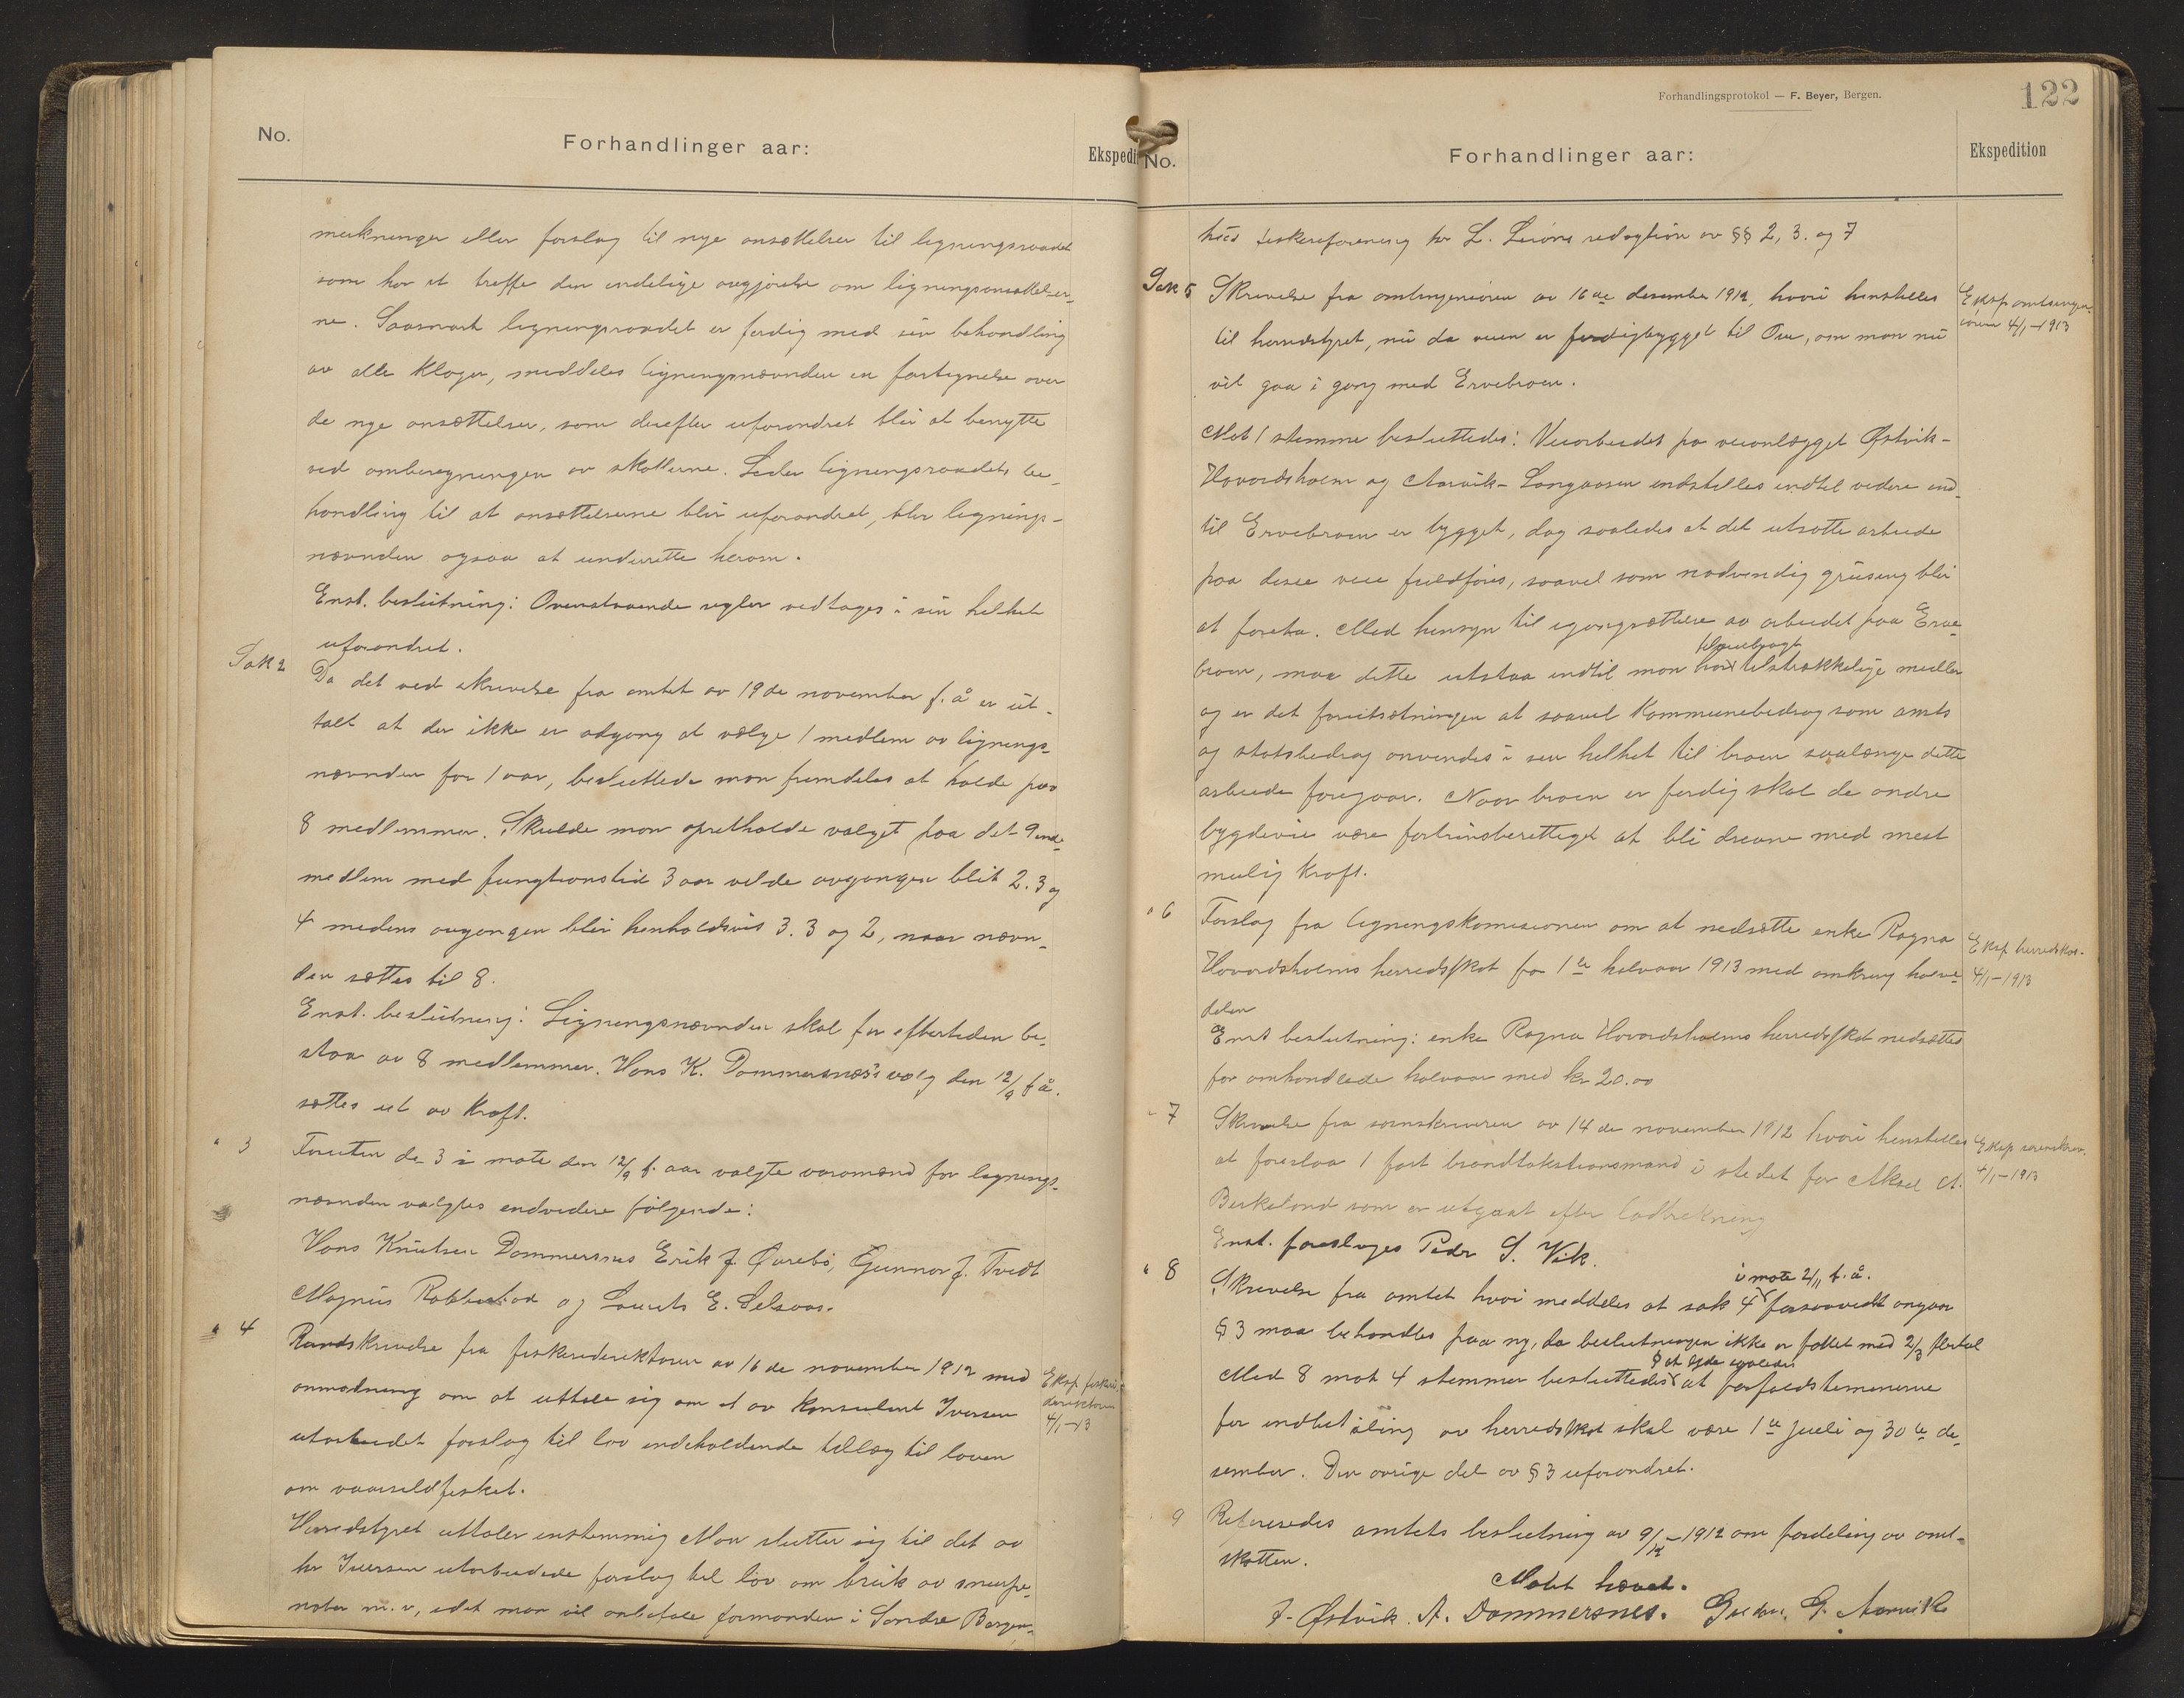 No.
Forhandlinger aar:
Ekspedi
merkninger eller forslag til nye ansættelser til ligningsraadet
som har at træffe den endelige avgjørelse om ligningsansættelser-
ne. Saasnart ligningsraadet er færdig med sin behandling
av alle klager, meddeles ligningsnævnden en fortegnelse over
de nye ansættelser, som derefter uforandret blir at benytte
ved omberegningen av skatterne. Leder ligningsraadets be-
handling til at ansættelserne blir uforandret, blir lignings-
nævnden ogsaa at underrette herom.
Enst. beslutning: Ovenstaaende regler vedtages i sin helhet
uforandret.
Sak 2
Da det ved skrivelse fra amtet av 19de november f. å er ut-
talt at der ikke er adgang at vælge 1 medlem av lignings-
nævnden for 1 aar, besluttede man fremdeles at holde paa
8 medlemmer. Skulde man opretholde valget paa det 9ende
medlem med fungtionstid 3 aar vilde avgangen blit 2. 3 og
4 medens avgangen blir henholdsvis 3. 3 og 2, naar nævn-
den sættes til 8.
Enst. beslutning: Ligningsnævnden skal for eftertiden be-
staa av 8 medlemmer. Hans K. Dommersnæs's valg den 12/9 f å.
sættes ut av kraft.
" 3
Foruten de 3 i møte den 12/9 f. aar valgte varamænd for lignings-
nævnden valgtes endvidere følgende:
Hans Knutsen Dommersnes Erik J. Øvrebø, Gunnar J. Tvedt
Magnus Rabbestad og Laurits E. Selsaas.
" 4
Rundskrivelse fra fiskeridirektøren av 16 de november 1912 med
anmodning om at uttale sig om et av konsulent Iversen
utarbeidet forslag til lov indeholdende tillæg til loven
om vaarsildfisket.
Eksp. fiskeri-
direktøren
4/1-13
Herredstyret uttaler enstemmig Man slutter sig til det av
hr Iversen utarbeidede forslag til lov om bruk av snurpe-
nøter m. v, idet man vil anbefale formanden i Søndre Bergen-
Forhandlingsprotokol — F. Beyer, Bergen.
122
No.
Forhandlinger aar:
Ekspedition
hus fiskeriforening hr L. redagtion av §§ 2, 3. og 7
Sak 5
Skrivelse fra amtingeniøren av 16 de desember 1912, hvori henstilles
til herredstyret, nu da veien er færdigbygget til Øen, om man nu
vil gaa i gang med Ervebroen.
Eksp amtsingen-
iøren 4/1-1913
Mot 1 stemme besluttedes: Veiarbeidet paa veianlægget Østvik-
Havardsholm og Aarvik-Langaasen indstilles indtil videre ind-
til Ervebroen er bygget, dog saaledes at det utsatte arbeide
paa disse veie fuldføres, saavel som nødvendig grusing blir
at foreta. Med hensyn til igangsættelse av arbeidet paa Erve-
broen, maa dette utstaa indtil man har tilveiebragt tilstrækkelige midler
og er det forutsætningen at saavel kommunebidrag som amts
og statsbidrag anvendes i sin helhet til broen saalænge dette
arbeide foregaar. Naar broen er færdig skal de andre
bygdeveie være fortrinsberettiget at bli drevne med mest
mulig kraft.
" 6
Forslag fra ligningskomisionen om at nedsætte enke Ragna
Havardsholms herredsskat for 1ste halvaar 1913 med omkring halve-
delen
Eksp herredskas.
4/1-1913
Enst beslutning: enke Ragna Havardsholms herredsskat nedsættes
for omhandlede halvaar med kr 20.00
" 7
Skrivelse fra sorenskriveren av 14 de november 1912 hvori henstilles
at foreslaa 1 fast brandtakstionsmand i stedet for Aksel A.
Birkeland som er utgaat efter lodtrekning
Eksp sorenskriv.
4/1-1913
Enst. foreslages Peder S. Vik.
" 8
Skrivelse fra amtet hvori meddeles at sak 4 i møte 2/11 f. å. forsaavidt angaar
§ 3 maa behandles paa ny, da beslutningen ikke er fattet med 2/3 flertal
Med 8 mot 4 stemmer besluttedes § at lyde saaledes at forfaldsterminerne
for indbetaling av herredsskat skal være 1ste juli og 30te de-
sember. Den øvrige del av § 3 uforandret.
9
Refereredes amtets beslutning av 9/12-1912 om fordeling av amt-
skatten.
Møtet hævet.
J. Østvik. A. Dommersnes. G. Aarvik